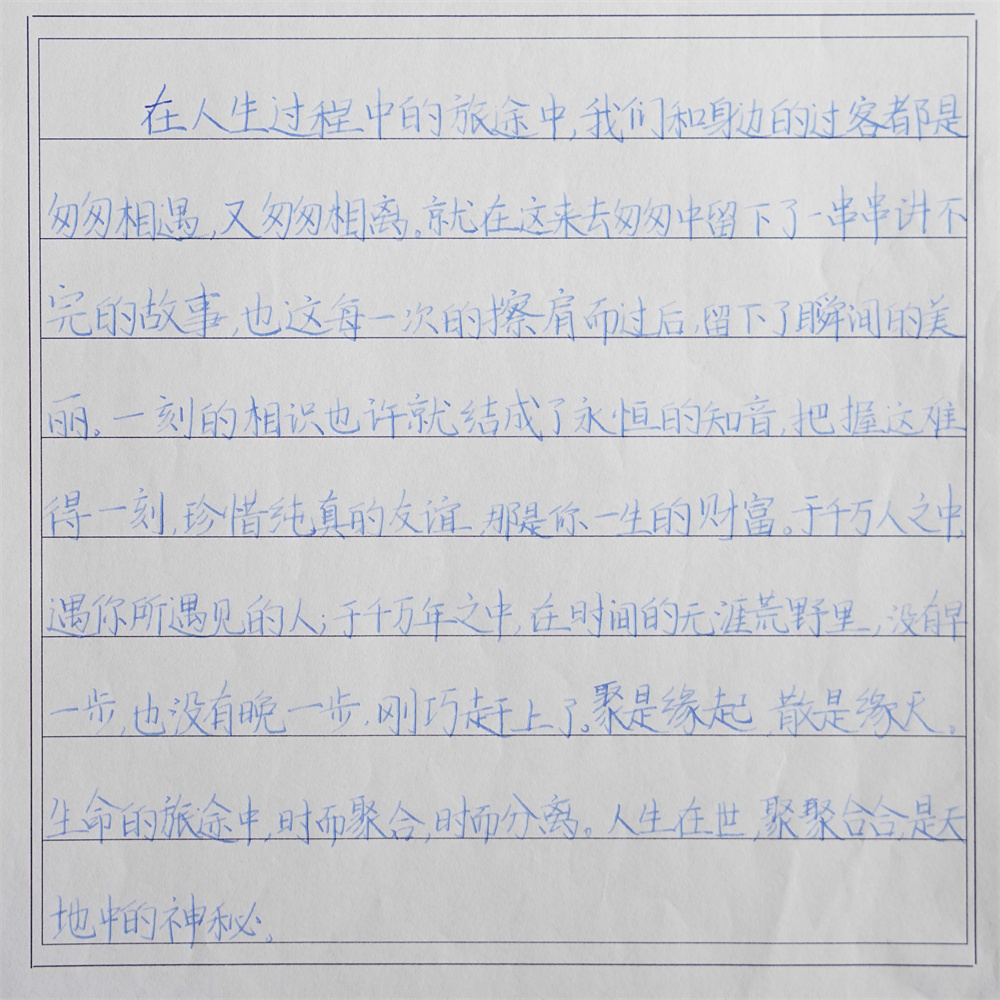 在人生过程中的旅途中,我们和身边的过客都是
匆匆相遇,又匆匆相离。就在这来去匆匆中留下了一串串讲不
完的故事,也这每一次的擦肩而过后,留下了瞬间的美
丽。一刻的相识也许就结成了永恒的知音,把握这难
得一刻,珍惜纯真的友谊,那是你一生的财富。于千万人之中,
遇你所遇见的人;于千万年之中,在时间的无涯荒野里,没有早
一步,也没有晚一步,刚巧赶上了。聚是缘起,散是缘灭。
生命的旅途中,时而聚合,时而分离。人生在世,聚聚合合,是天
地中的神秘。